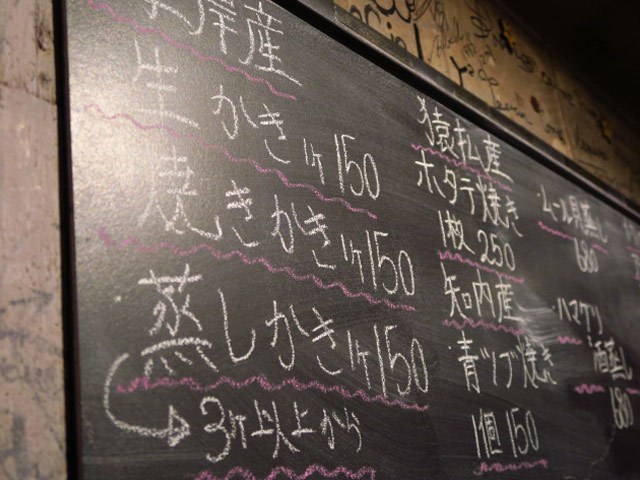 岸産
生かき 1ケ150
焼きかき 1ケ150
蒸しかき 1ケ150
3ケ以上から
猿払産
ホタテ焼き
1枚 250
知内産
青ツブ焼き
1個 150
ムール貝蒸し
680
ハマグリ
酒蒸し